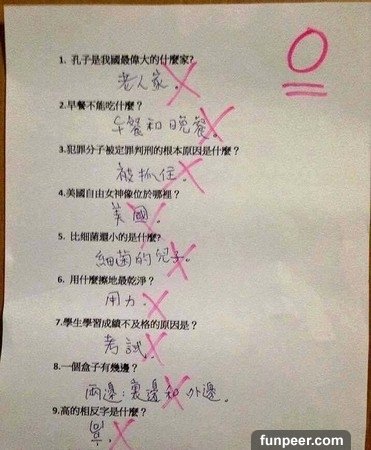 0
1. 孔子是我國最偉大的什麼家?
老人家。
2.早餐不能吃什麼？
午餐和晚餐。
3.犯罪分子被定罪判刑的根本原因是什麼？
被抓住。
4.美國自由女神像位於哪裡？
美國。
5. 比細菌還小的是什麼?
細菌的兒子。
6. 用什麼擦地最乾淨？
用力。
7.學生學習成績不及格的原因是？
考試。
8.一個盒子有幾邊？
兩邊：裏邊和外邊。
9.高的相反字是什麼？
funpeer.com